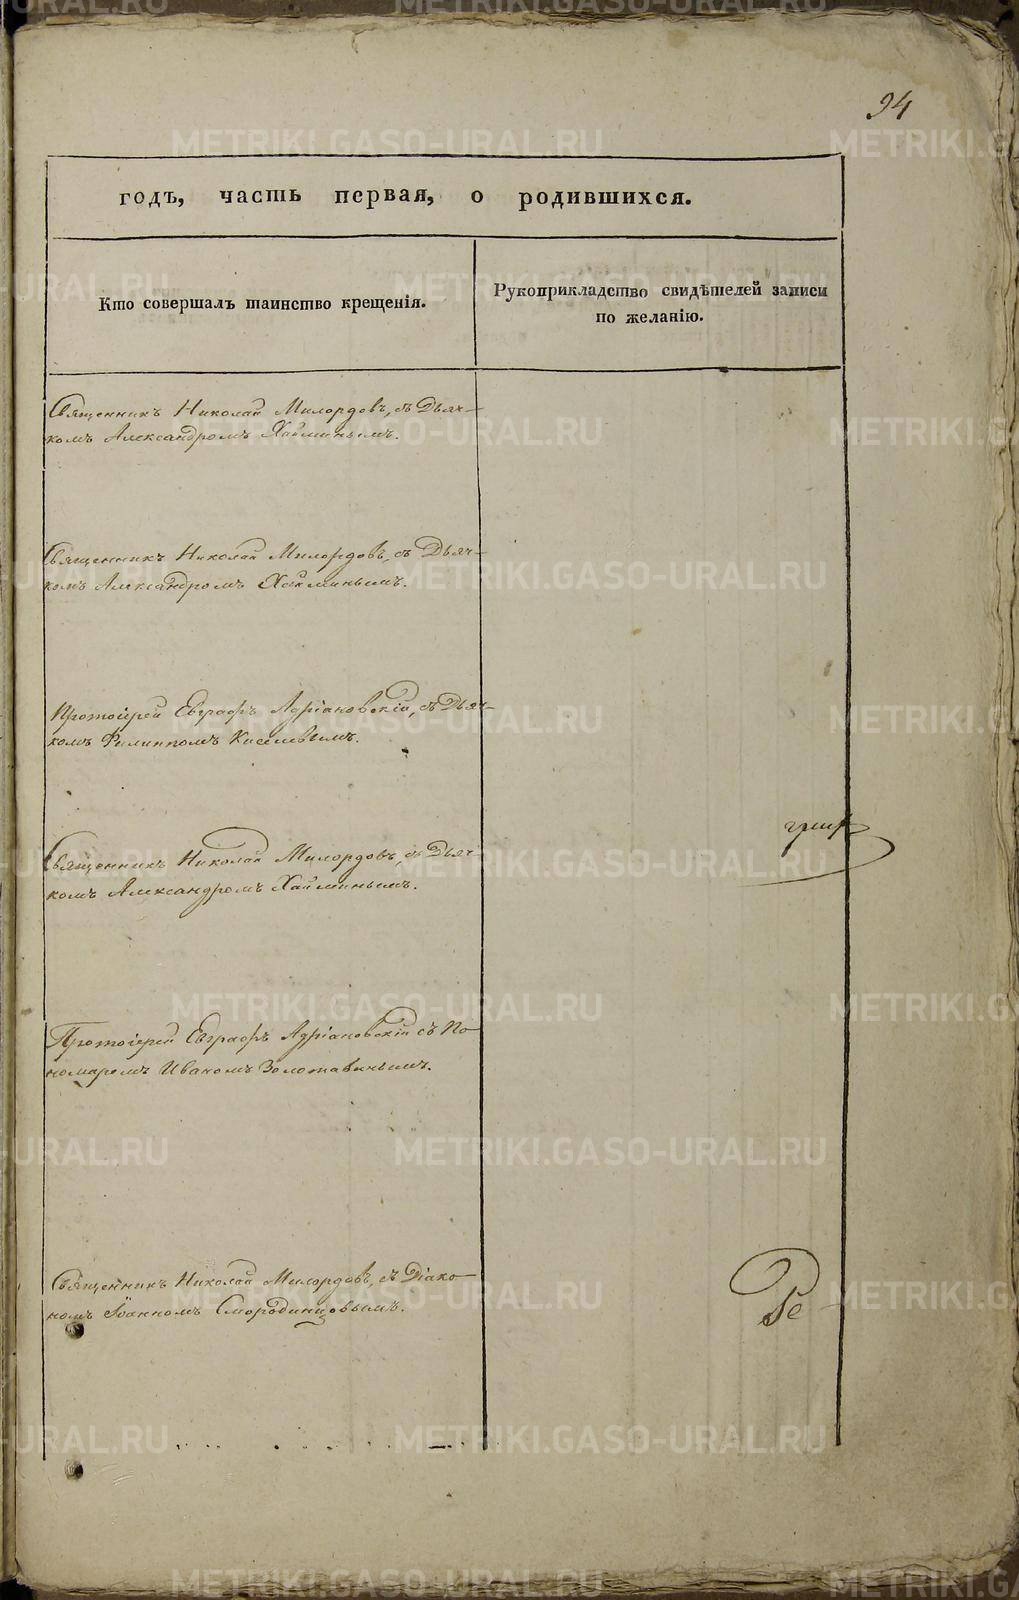 94
годъ, часть первая, о родившихся.
Кто совершалъ таинство крещенія.
Рукоприкладство свидѣтелей записи
по желанію.
Священникъ Николай Милордовъ, съ Дьяч-
комъ Александромъ Хайминымъ.
Священникъ Николай Милордовъ, съ Дьяч-
комъ Александромъ Хайминымъ.
Протоіерей Евграфъ Адріановскій, съ Дьяч-
комъ Филиппомъ Киселевымъ.
Священникъ Николай Милордовъ, съ Дьяч-
комъ Александромъ Хайминымъ.
Протоіерей Евграфъ Адріановскій съ По-
номаремъ Иваномъ Золотавинымъ.
Священникъ Николай Милордовъ, съ Діако-
номъ Іоанномъ Смородинцовымъ.
METRIKI.GASO-URAL.RU